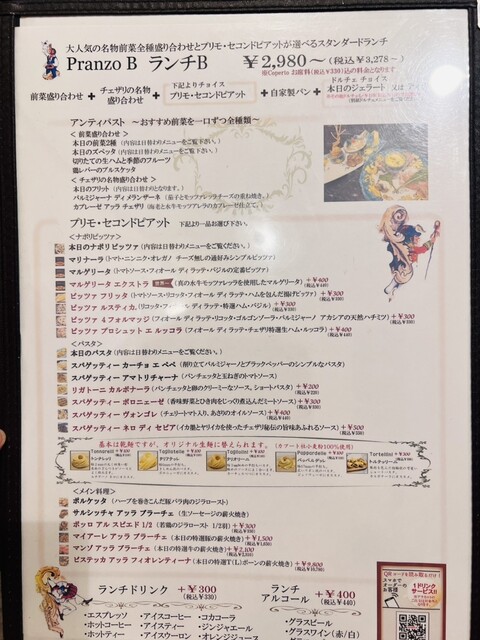 大人気の名物前菜全種盛り合わせとプリモ・セコンドピアットが選べるスタンダードランチ
Pranzo B ランチB ￥2,980～(税込￥3,278～)
※Coperto お席料(税込￥330)込の料金となります
前菜盛り合わせ + チェザリの名物盛り合わせ + 下記よりチョイス プリモ・セコンドピアット + 自家製パン + ドルチェ チョイス 本日のジェラート 又は
アンティパスト ～おすすめ前菜を一口ずつ全種類～
＜前菜盛り合わせ＞
本日の前菜2種 (内容は日替わりメニューをご覧下さい。)
本日のズッパ (内容は日替わりメニューをご覧下さい。)
切りたての生ハムと季節のフルーツ
鶏レバーのブルスケッタ
＜チェザリの名物盛り合わせ＞
本日のフリット (内容は日替わりとなります。)
パルミジャーナ ディ メランザーネ (茄子とモッツァレラチーズの重ね焼き。)
カプレーゼ アッラ チェザリ (海老と水牛モッツァレラのカプレーゼ仕立て。)
プリモ・セコンドピアット 下記より一品お選び下さい。
＜ナポリピッツァ＞
本日のナポリピッツァ (内容は日替わりメニューをご覧ください。)
マリナーラ (トマト・ニンニク・オレガノ チーズ無しの通好みシンプルピッツァ)
マルゲリータ (トマトソース・フィオール ディ ラッテ・バジルの定番ピッツァ)
マルゲリータ エクストラ (真の水牛モッツァレッラを使用したマルゲリータ) +￥400 (税込￥440)
ピッツァ フリッタ (トマトソース・リコッタ・フィオール ディ ラッテ・ハムを包んだ揚げピッツァ) +￥300 (税込￥330)
ピッツァ ルスティカ (リコッタ・フィオール ディ ラッテ・チェザリ特選ハム・バジル) +￥300 (税込￥330)
ピッツァ 4フォルマッジ (フィオール ディ ラッテ・リコッタ・ゴルゴンゾーラ・パルミジャーノ アカシアの天然ハチミツ) +￥300 (税込￥330)
ピッツァ プロシュット エ ルッコラ (フィオール ディ ラッテ・チェザリ特選生ハム・ルッコラ) +￥400 (税込￥440)
＜パスタ＞
本日のパスタ (内容は日替わりメニューをご覧ください。)
スパゲッティー カーチョ エ ペペ (削り立てパルミジャーノとブラックペッパーのシンプルなパスタ)
スパゲッティー アマトリチャーナ (パンチェッタと玉ねぎのトマトソース)
リガトーニ カルボナーラ (パンチェッタと卵のクリーミーなソース、ショートパスタ) +￥200 (税込￥220)
スパゲッティー ボロニェーゼ (香味野菜とひき肉をじっくり煮込んだミートソース) +￥300 (税込￥330)
スパゲッティー ヴォンゴレ (チェリートマト入り、あさりのオイルソース) +￥400 (税込￥440)
スパゲッティー ネロ ディ セピア (イカ墨とヤリイカを使ったチェザリ秘伝の旨味あふれるソース) +￥500 (税込￥550)
基本は乾麺ですが、オリジナル生麺に替えられます。(カプート社小麦粉100%使用)
Tonnarelli +￥300
Tagliatelle +￥300
Pappardelle +￥300
＜メイン料理＞
ポルケッタ (ハーブを巻きこんだ豚バラ肉のジラロースト)
サルシッチャ アッラ ブラーチェ (生ソーセージの薪火焼き)
ポッロ アル スピエド 1/2 (若鶏のジラロースト 1/2羽) +￥300 (税込￥330)
マイアーレ アッラ ブラーチェ (本日の特選豚の薪火焼き) +￥1,500 (税込￥1,650)
マンゾ アッラ ブラーチェ (本日の特選牛の薪火焼き) +￥2,100 (税込￥2,310)
ビステッカ アッラ フィオレンティーナ (本日の特選T(L)ボーンの薪火焼き) +￥9,800 (税込￥10,780)
ランチドリンク +￥300 (税込￥330)
・エスプレッソ ・アイスコーヒー ・コカコーラ
・ホットコーヒー ・アイスティー ・ジンジャエール
・ホットティー ・アイスウーロン ・オレンジジュース
ランチ アルコール +￥400 (税込￥440)
・グラススプマンテ(泡)
・グラスワイン(赤/白)
QRコードを読み取るだけ!
スマホでオーダーのお客様
1ドリンクサービス!!